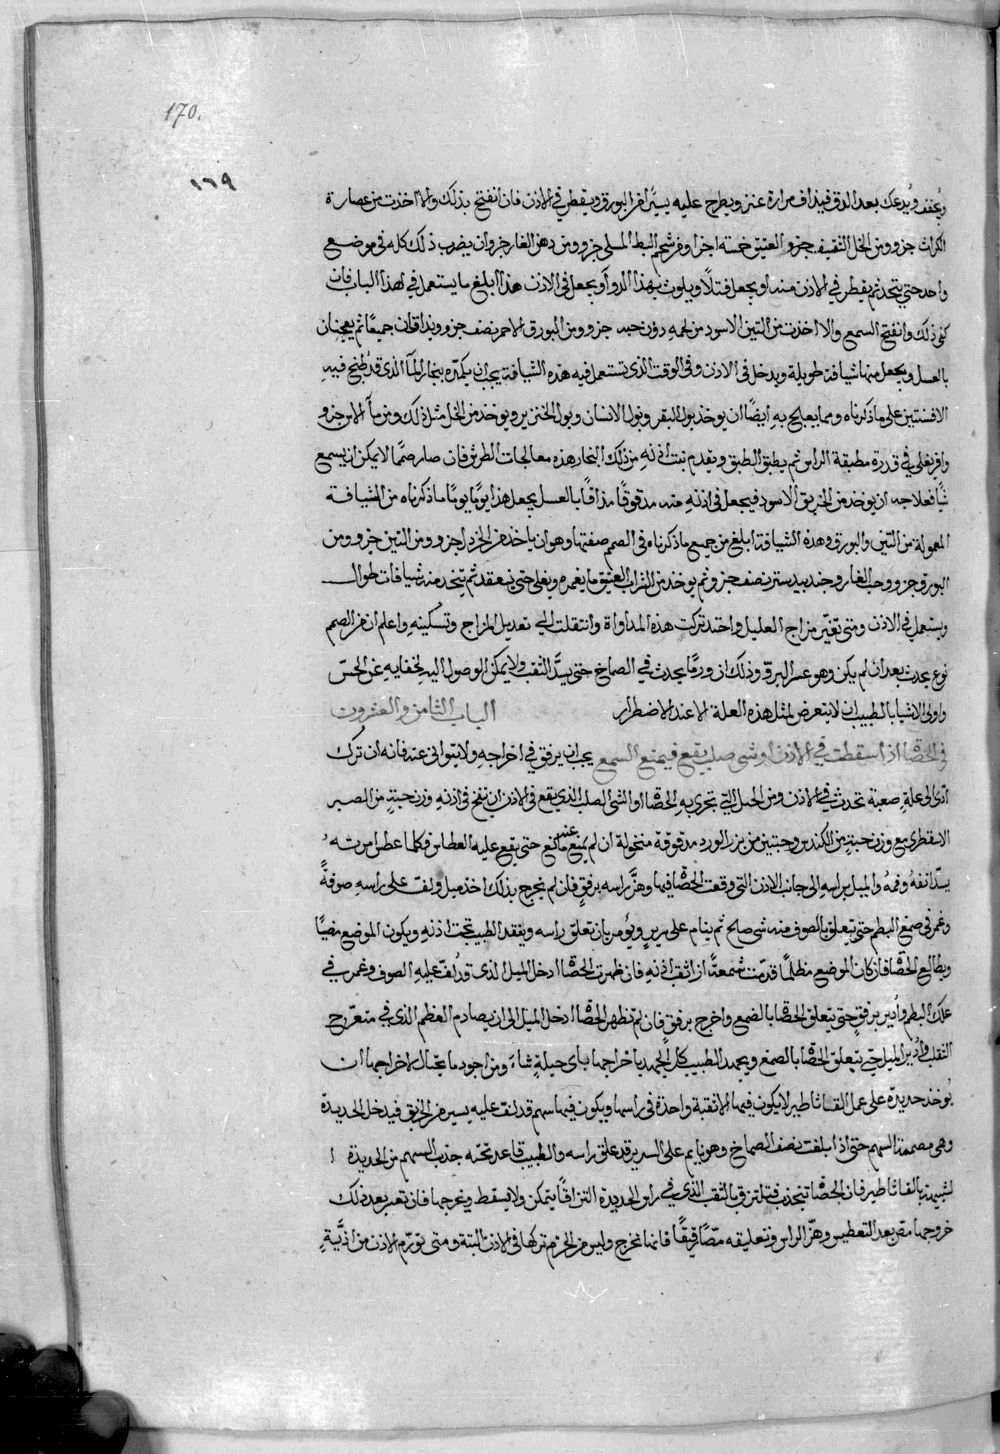 170.
١٦٩
ويُدعك بعد الدق فيذاف مرارة عنز ويطرح عليه يسيرًا من البورق ويقطر في الاذن فان انفتح بذلك والا اخذت من عصارة
الكراث جزو ومن الخل الثقيف جزو العتيق خمسة اجزا ومن شحم البط المسلى جزو ومن دهن الغار جزو ان يضرب ذلك كله في موضع
واحد حتى يتحد ثم يقطر في الاذن منه او يجعل فتلًا ويلوث بهذا الدوآ ويجعل في الاذن هذا ابلغ ما يستعمل في هذا الباب فان
كفي ذلك وانفتح السمع والا اخذت من التين الاسود من لحمه دون حبه جزو ومن البورق الاحمر نصف جزو ويدافان جميعًا ثم يعجنان
بالعسل ويجعل منها شيافة طويلة ويدخل في الاذن وفي الوقت الذي تستعمل فيه هذه الشيافة يجب ان يكمّد ببخار المآ الذي قد طُبخ فيه
الافسنتين على ما ذكرناه ومما يعالج به ايضًا ان يوخذ بول البقر وبول الانسان وبول الخنزير ويوخذ من الخل مثل ذلك ومن مآ جزو
وافر يغلى في قدرة مطبقة الراس ثم يطبق الطبق ويقدم اذنه من ذلك البخار هذه معالجات الطرش فان صار صممًا لا يمكن ان يسمع
شيًا فعلاجه ان يوخذ من الخربق الاسود فيجعل في اذنه منه مدقوقًا مذافًا بالعسل يجعل هذا يومًا يومًا ما ذكرناه من الشيافة
المعمولة من التين والبورق وهذه الشيافة ابلغ من جميع ما ذكرناه في الصمم صفتها وهو ان ياخذ من الخردل جزو ومن التين جزو ومن
البورق جزو وحب الغار وجندبيدستر نصف جزو ثم يوخذ من الشراب العتيق ما يغمره ويغلى حتى ينعقد ثم يتخذ منه شيافات طوال
ويستعمل في الاذن ومتى تغيّر مزاج العليل واحتد تركت هذه المداواة وانتقلت الى تعديل المزاج وتسكينه واعلم ان من الصمم
نوع يحدث بعد ان لم يكن وهو عسر البرؤ وذلك ان ورمًا يحدث في الصماخ حتى يسدّ الثقب ولا يمكن الوصول اليه لخفايه عن الحسّ
واولى الاشيا بالطبيب ان لا يتعرض لمثل هذه العلة الا عند الاضطرار الباب الثامن والعشرون
في الحصا اذا سقطت في الاذن او شى صلب يقع فيمنع السمع يجب ان يرفق في اخراجه ولا يتوانى عنه فانه ان ترك
ادى الى علةٍ صعبة تحدث في الاذن ومن الحيل التي تخرج به الحصا او الشى الصلب الذي يقع في الاذن ان ينفخ في اذنه وزن حبتين من الصبر
الاسقطري مع وزن حبتين الكندس وحبتين من بزر الورد مدقوقة منخولة ان لم يمنع عنه مانع حتى يقع عليه العطاس فكلما عطس امرته
يسدّ انفهُ وفمهُ والميل براسه الى جانب الاذن التي وقعت الحصا فيها وهزّ راسه برفق فان لم تخرج بذلك اخذ ميل ولفّ على راسه صوفةً
وغمر في صمغ البطم حتى يتعلق بالصوف منه شى صالح ثم ينام على سرير ويؤمر بان تعلق راسه ويقعد الطبيب تحت اذنه ويكون الموضع مضيًا
ويطالع الحصا فان كان الموضع مظلمًا قدّمت شمعةً اذا ثقب اذنه فان ظهرت الحصا ادخل الميل الذي قد لُفّ عليه الصوف وغمر في
علك البطم واُدير برفق حتى يتعلق الحصا بالصمغ واخرج برفق فان لم تظهر الحصا ادخل الميل الى ان يصادم العظم الذي في متعرّج
الثقب واُدير الميل حتى يتعلق الحصا بالصمغ ويجهد الطبيب كل الجهد باخراجها باى حيلةٍ شاءَ ومن اجود ما يحتال لاخراجها ان
يُوخذ حديدة على عمل القاثاطير لا يكون فيها الا ثقبة واحدة في راسها ويكون فيها سهم قد لف عليه يسير من فيدخل الحديدة
وهى مصممة السهم حتى اذا بلغت نصف الصماخ وهو نايم على السرير قد علق راسه والطبيب قاعد تحته جذب السهم من الحديدة
لشبيهة بالقاثاطير فان الحصا تنجذب فتلتزق بالثقب الذي في راس الحديدة التزاقًا يتمكن ولا يسقط ويخرجها فان تعسر بعد ذلك
خروجها مص بعد التعطيس وهزّ الراس وتعليقه مصًّا رقيقًا فانها تخرج وليس من الحزم تركها في الاذن البتة ومتى تورّم الاذن من اذيّة